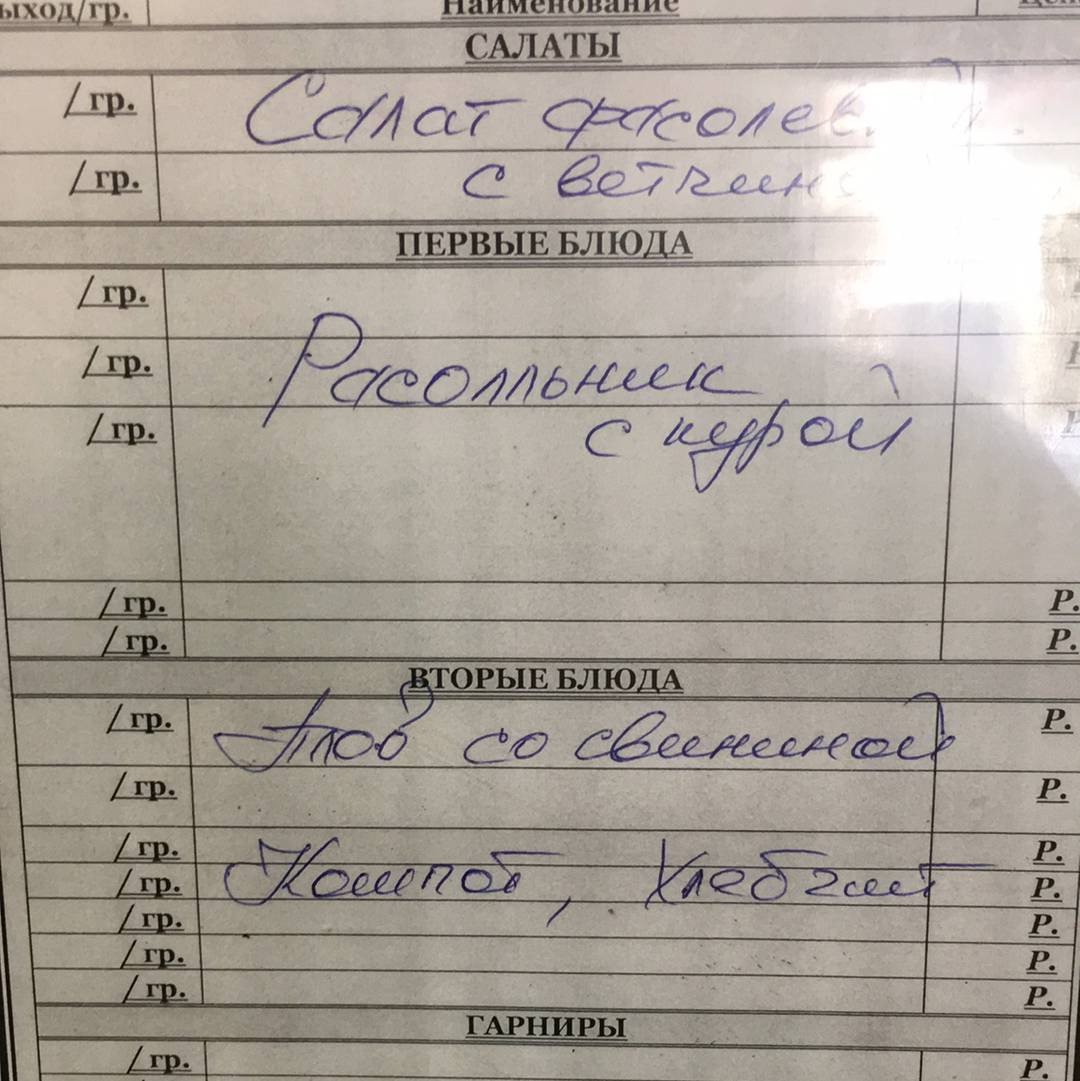 Наименование
САЛАТЫ
/гр. Салат
/гр. с
ПЕРВЫЕ БЛЮДА
/гр.
/гр. Расолльник
/гр. с курой
/гр. Р.
/гр. Р.
ВТОРЫЕ БЛЮДА
/гр. Плов со свининой Р.
/гр. Р.
/гр. Р.
/гр. Компот, Хлеб 2шт Р.
/гр. Р.
/гр. Р.
/гр. Р.
ГАРНИРЫ
/гр. Р.